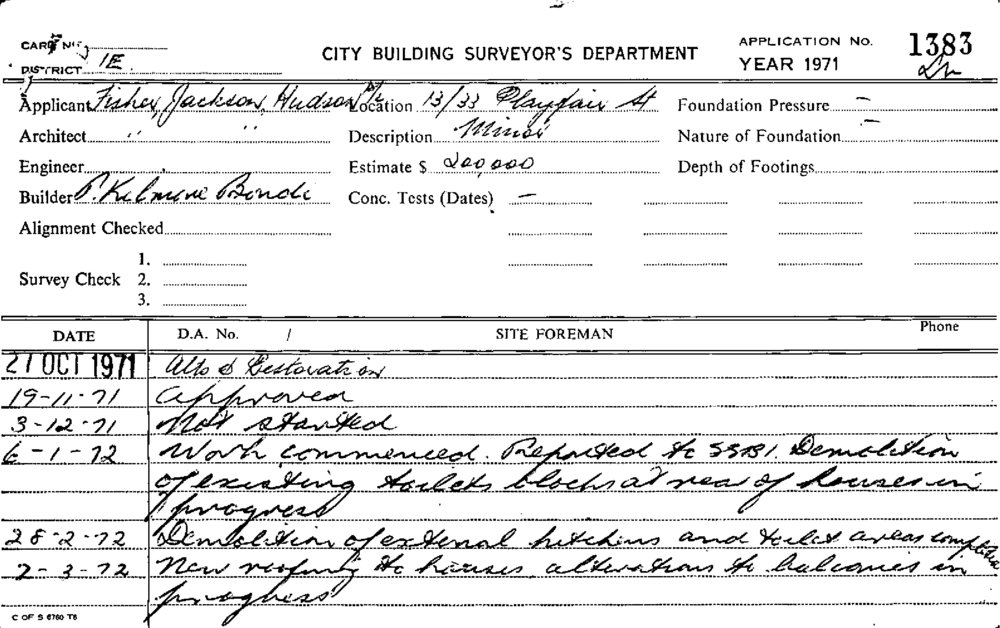 CARD No.
DISTRICT 1E
CITY BUILDING SURVEYOR'S DEPARTMENT
APPLICATION No. 1383
YEAR 1971
Applicant Fisher, Jackson, Hudson Location 13/33 Playfair St Foundation Pressure –
Architect " " Description Minor Nature of Foundation –
Engineer Estimate $ 200,000 Depth of Footings
Builder P. Kilmore Bondi Conc. Tests (Dates) –
Alignment Checked
1.
Survey Check 2.
3.
DATE D.A. No. / SITE FOREMAN Phone
21 OCT 1971 Alts & Restoration
19-11-71 Approved
3-12-71 Not started
6-1-72 Work commenced. Reported to SSBI. Demolition
of existing toilets blocks at rear of houses in
progress
28-2-72 Demolition of external kitchens and toilet areas complete
2-3-72 New roofing to houses alterations to balconies in
progress
C OF S 6760 T6